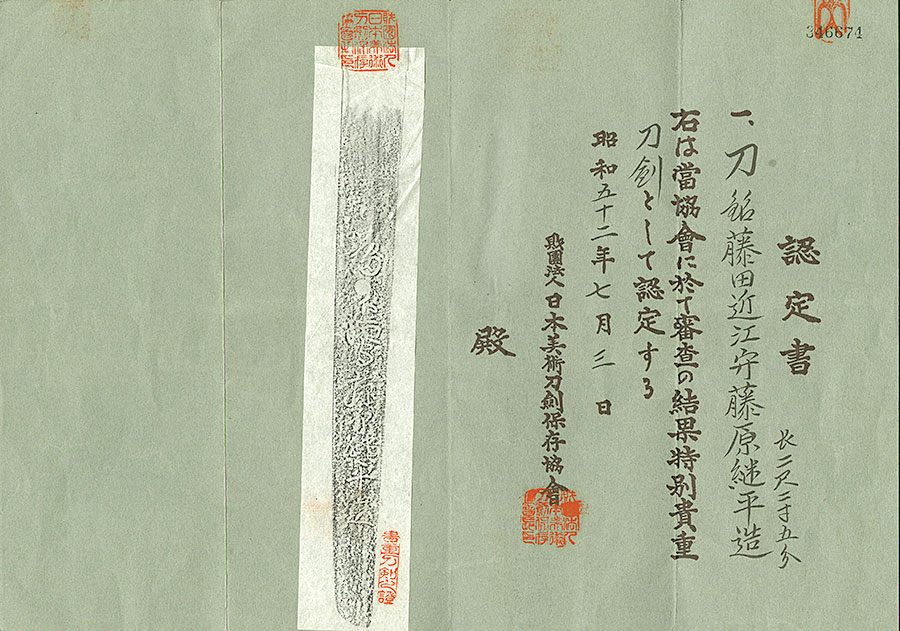 346674
認定書
一、刀 銘 藤田近江守藤原継平造
長二尺三寸五分
右は當協會に於て審査の結果特別貴重
刀劍として認定する
昭和五十二年七月三日
財團法人日本美術刀劍保存協會
殿